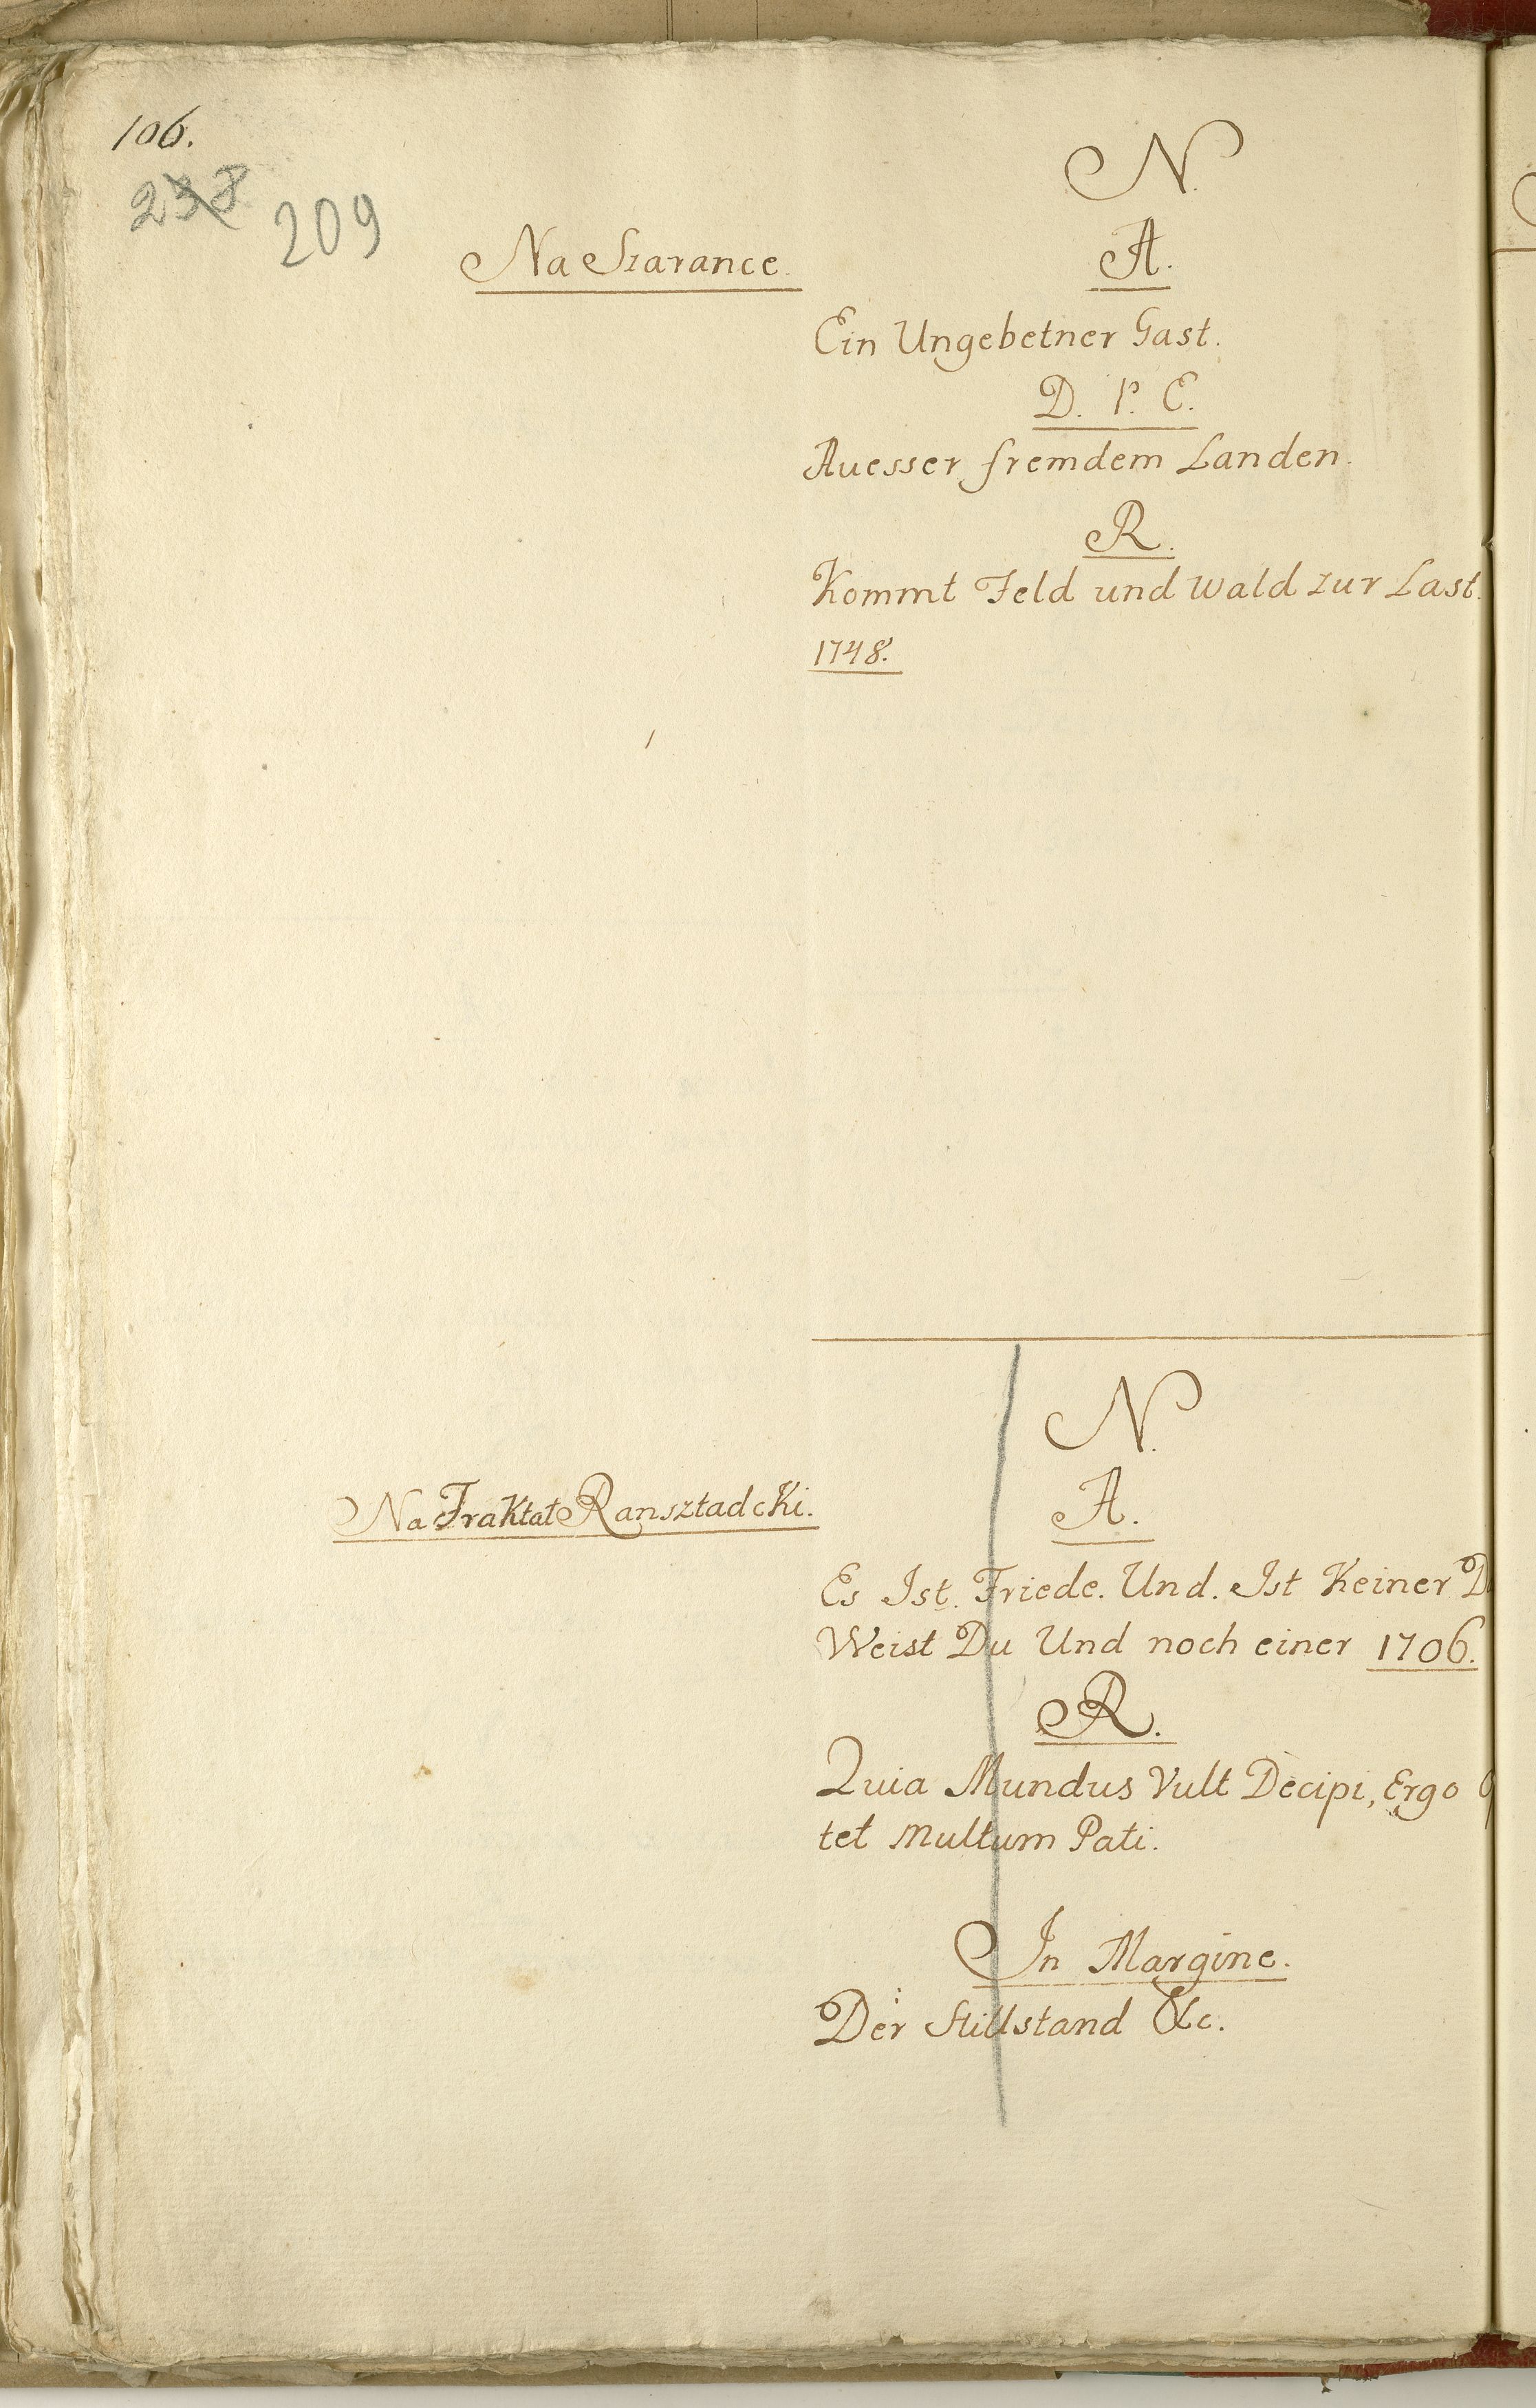 106.
238 209
N.
Na Szarance.
A.
Ein Ungebetner Gast.
D. P. E.
Auesser fremdem Landen.
R.
Kommt Feld und Wald zur Last.
1748.
N.
A.
Na Traktat Ransztadcki.
Es Ist. Friede. Und. Ist Keiner
Weist Du Und noch einer 1706.
R.
Quia Mundus Vult Decipi, Ergo
tet Multum Pati.
In Margine.
Der Stillstand &c.